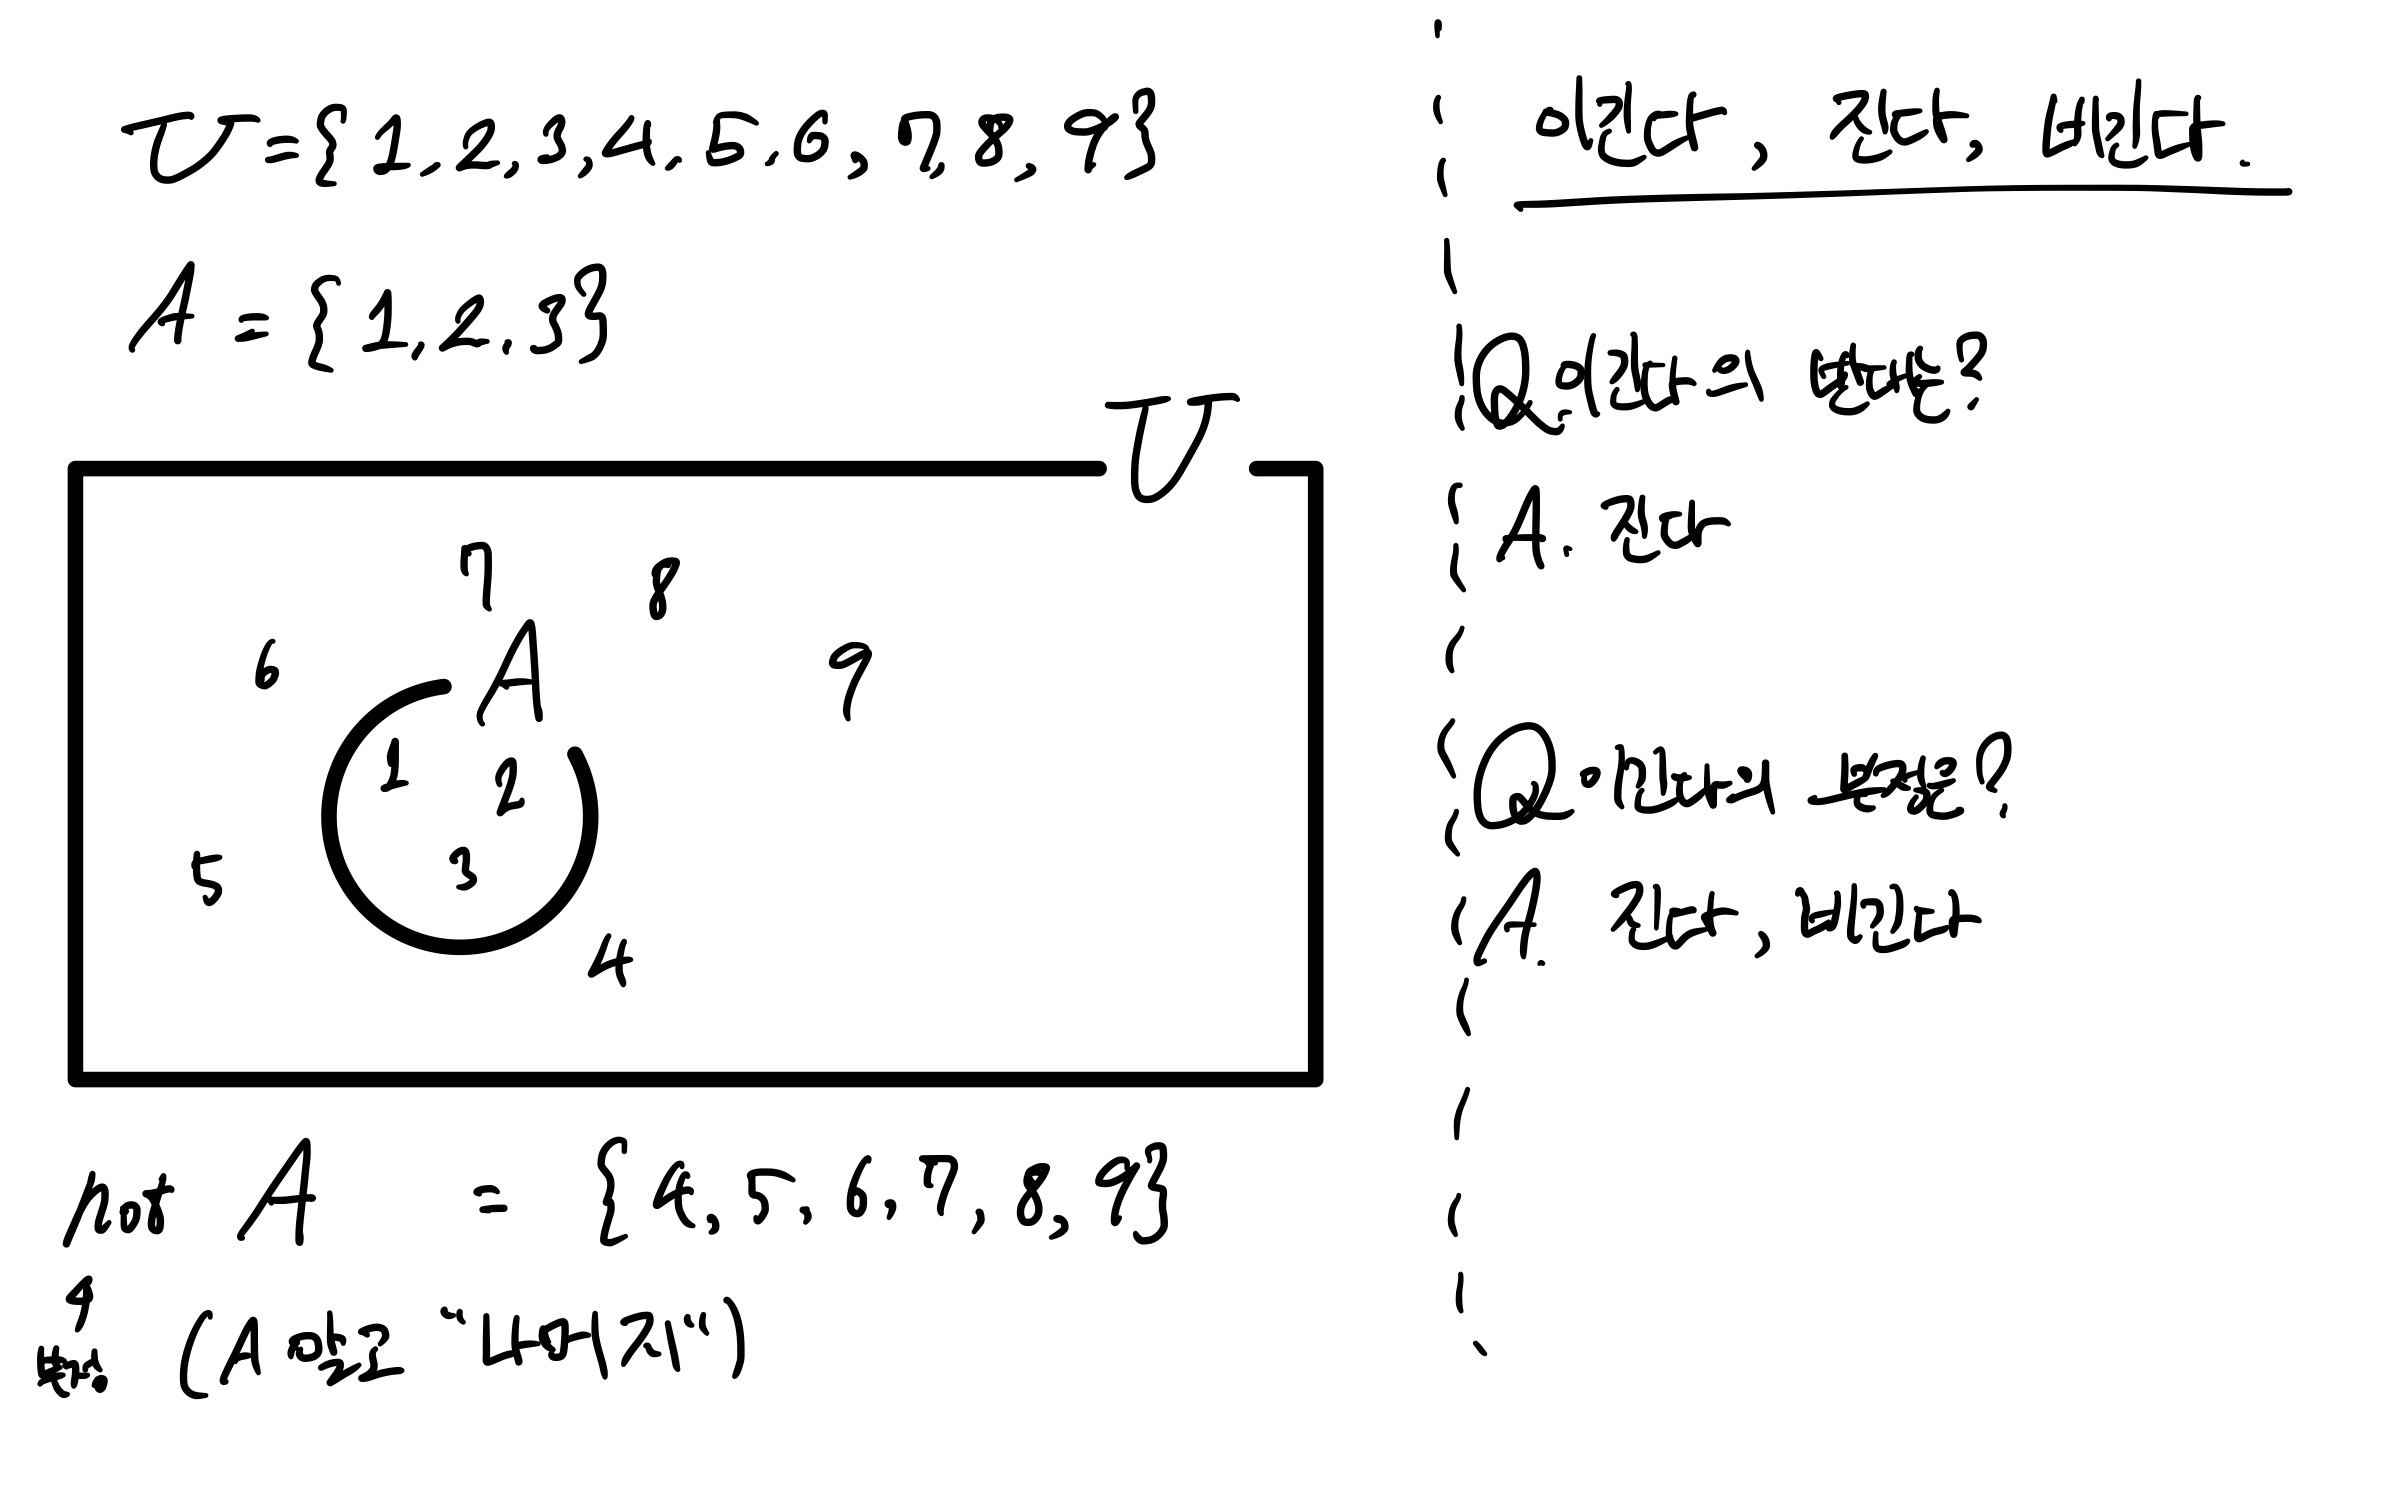 U={1,2,3,4,5,6,7,8,9}
A={1,2,3}
U
7
8
6
A
9
1
2
5
3
4
not A = {4,5,6,7,8,9}
(A 외 "나머지")
이긴다, 진다, 비긴다.
Q. 이긴다의 반대말?
A. 진다
Q. 이긴다의 부정?
A. 진다, 비긴다